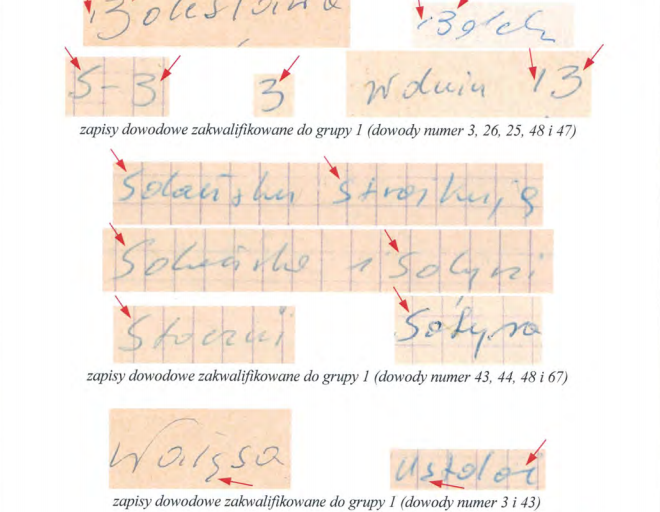 Bolesława Bolek
S-3 3 w dniu 13
zapisy dowodowe zakwalifikowane do grupy 1 (dowody numer 3, 26, 25, 48 i 47)
Gdańsku strajkują
Gdańska i Gdyni
zapisy dowodowe zakwalifikowane do grupy 1 (dowody numer 43, 44, 48 i 67)
Wałęsa
zapisy dowodowe zakwalifikowane do grupy 1 (dowody numer 3 i 43)